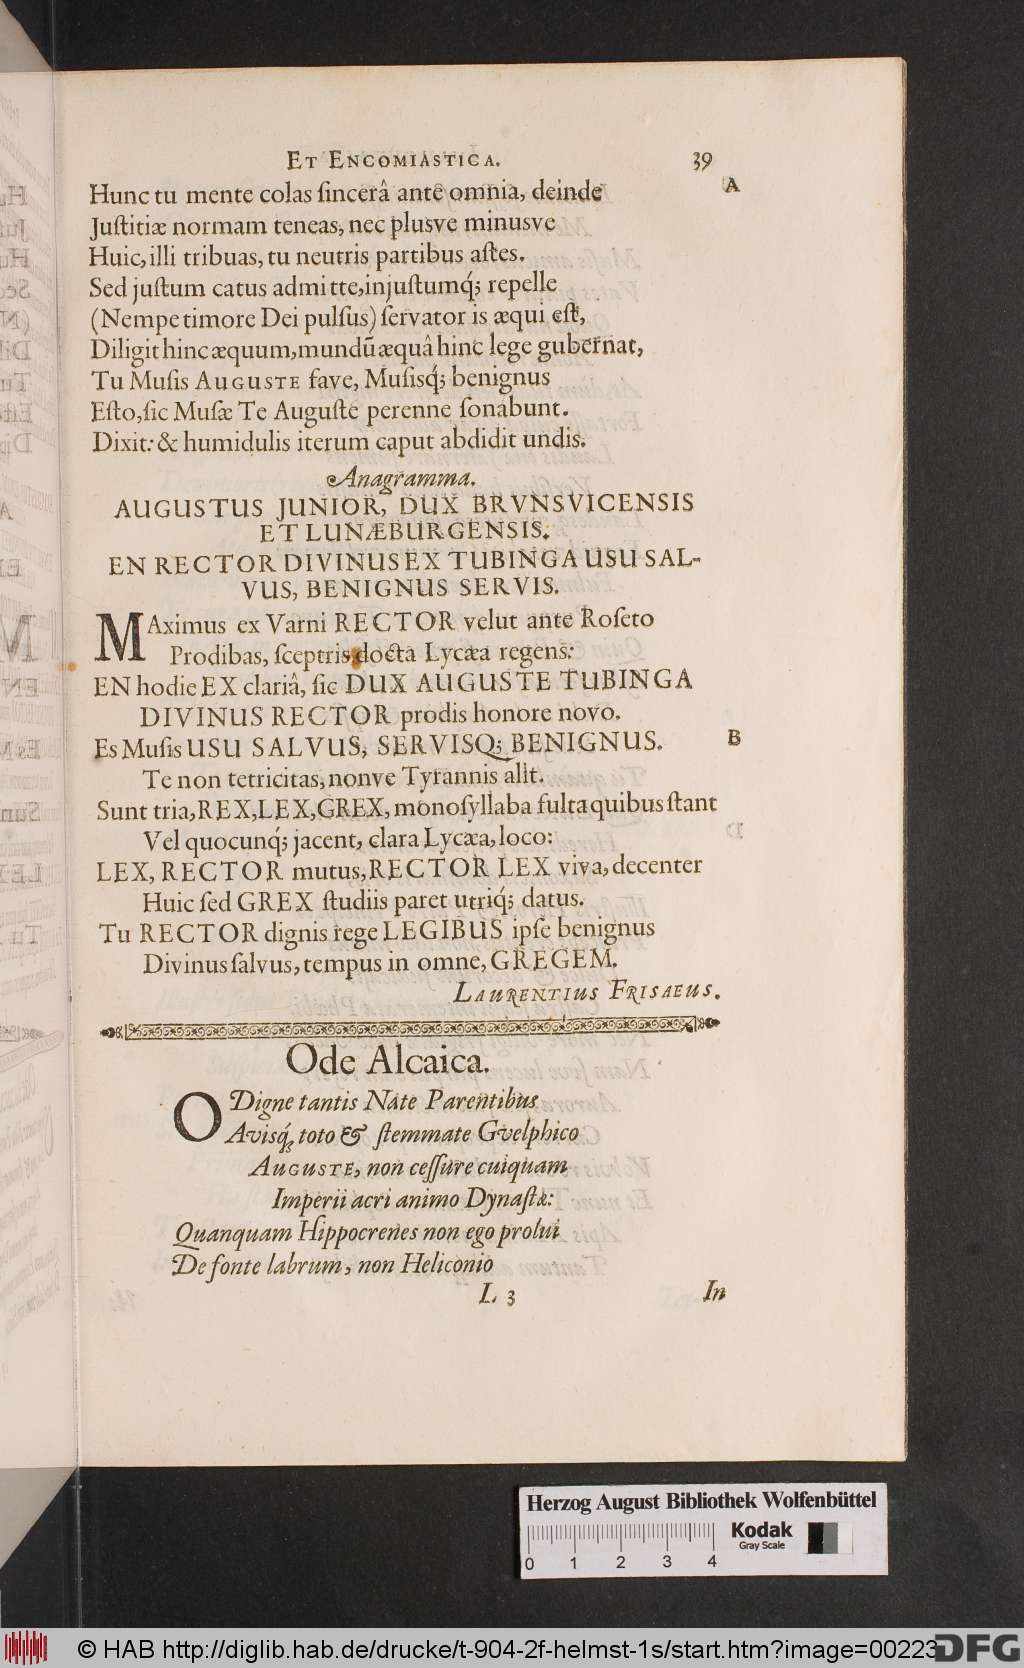 ET ENCOMIASTICA. 39
Hunc tu mente colas ſincerâ ante omnia, deinde A
Juſtitiæ normam teneas, nec plusve minusve
Huic, illi tribuas, tu neutris partibus aſtes.
Sed juſtum catus admitte, injuſtumq́; repelle
(Nempe timore Dei pulſus) ſervator is æqui eſt,
Diligit hinc æquum, mundũ æquâ hinc lege gubernat,
Tu Muſis AUGUSTE fave, Muſisq́; benignus
Eſto, ſic Muſæ Te Auguſte perenne ſonabunt.
Dixit: & humidulis iterum caput abdidit undis.
Anagramma.
AUGUSTUS JUNIOR, DUX BRVNSVICENSIS
ET LUNÆBURGENSIS.
EN RECTOR DIVINUS EX TUBINGA USU SAL-
VUS, BENIGNUS SERVIS.
MAximus ex Varni RECTOR velut ante Roſeto
Prodibas, ſceptris docta Lycæa regens:
EN hodie EX clariâ, ſic DUX AUGUSTE TUBINGA
DIVINUS RECTOR prodis honore novo.
Es Muſis USU SALVUS, SERVISQ; BENIGNUS. B
Te non tetricitas, nonve Tyrannis alit.
Sunt tria, REX, LEX, GREX, monoſyllaba fulta quibus ſtant
Vel quocunq́; jacent, clara Lycæa, loco:
LEX, RECTOR mutus, RECTOR LEX viva, decenter
Huic ſed GREX ſtudiis paret utriq́; datus.
Tu RECTOR dignis rege LEGIBUS ipſe benignus
Divinus ſalvus, tempus in omne, GREGEM.
LAURENTIUS FRISAEUS.
Ode Alcaica.
O Digne tantis Nate Parentibus
Avisq́; toto & ſtemmate Gvelphico
AUGUSTE, non ceſſure cuiquam
Imperii acri animo Dynaſtæ:
Quanquam Hippocrenes non ego prolui
De fonte labrum, non Heliconio
L 3 In
Herzog August Bibliothek Wolfenbüttel
Kodak
Gray Scale
0 1 2 3 4
© HAB http://diglib.hab.de/drucke/t-904-2f-helmst-1s/start.htm?image=00223
DFG